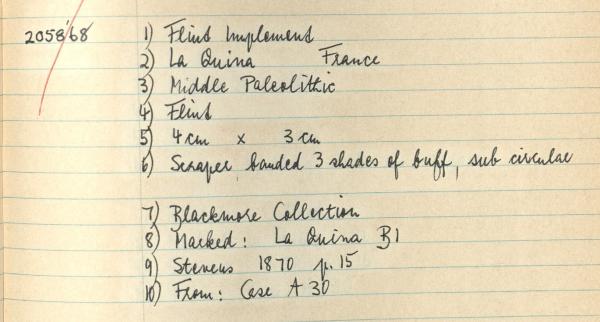 2058'68 1) Flint Implement
2) La Quina France
3) Middle Paleolithic
4) Flint
5) 4cm x 3cm
6) Scraper banded 3 shades of buff, sub circular
7) Blackmore Collection
8) Marked: La Quina B1
9) Stevens 1870 p.15
10) From: Case A 30